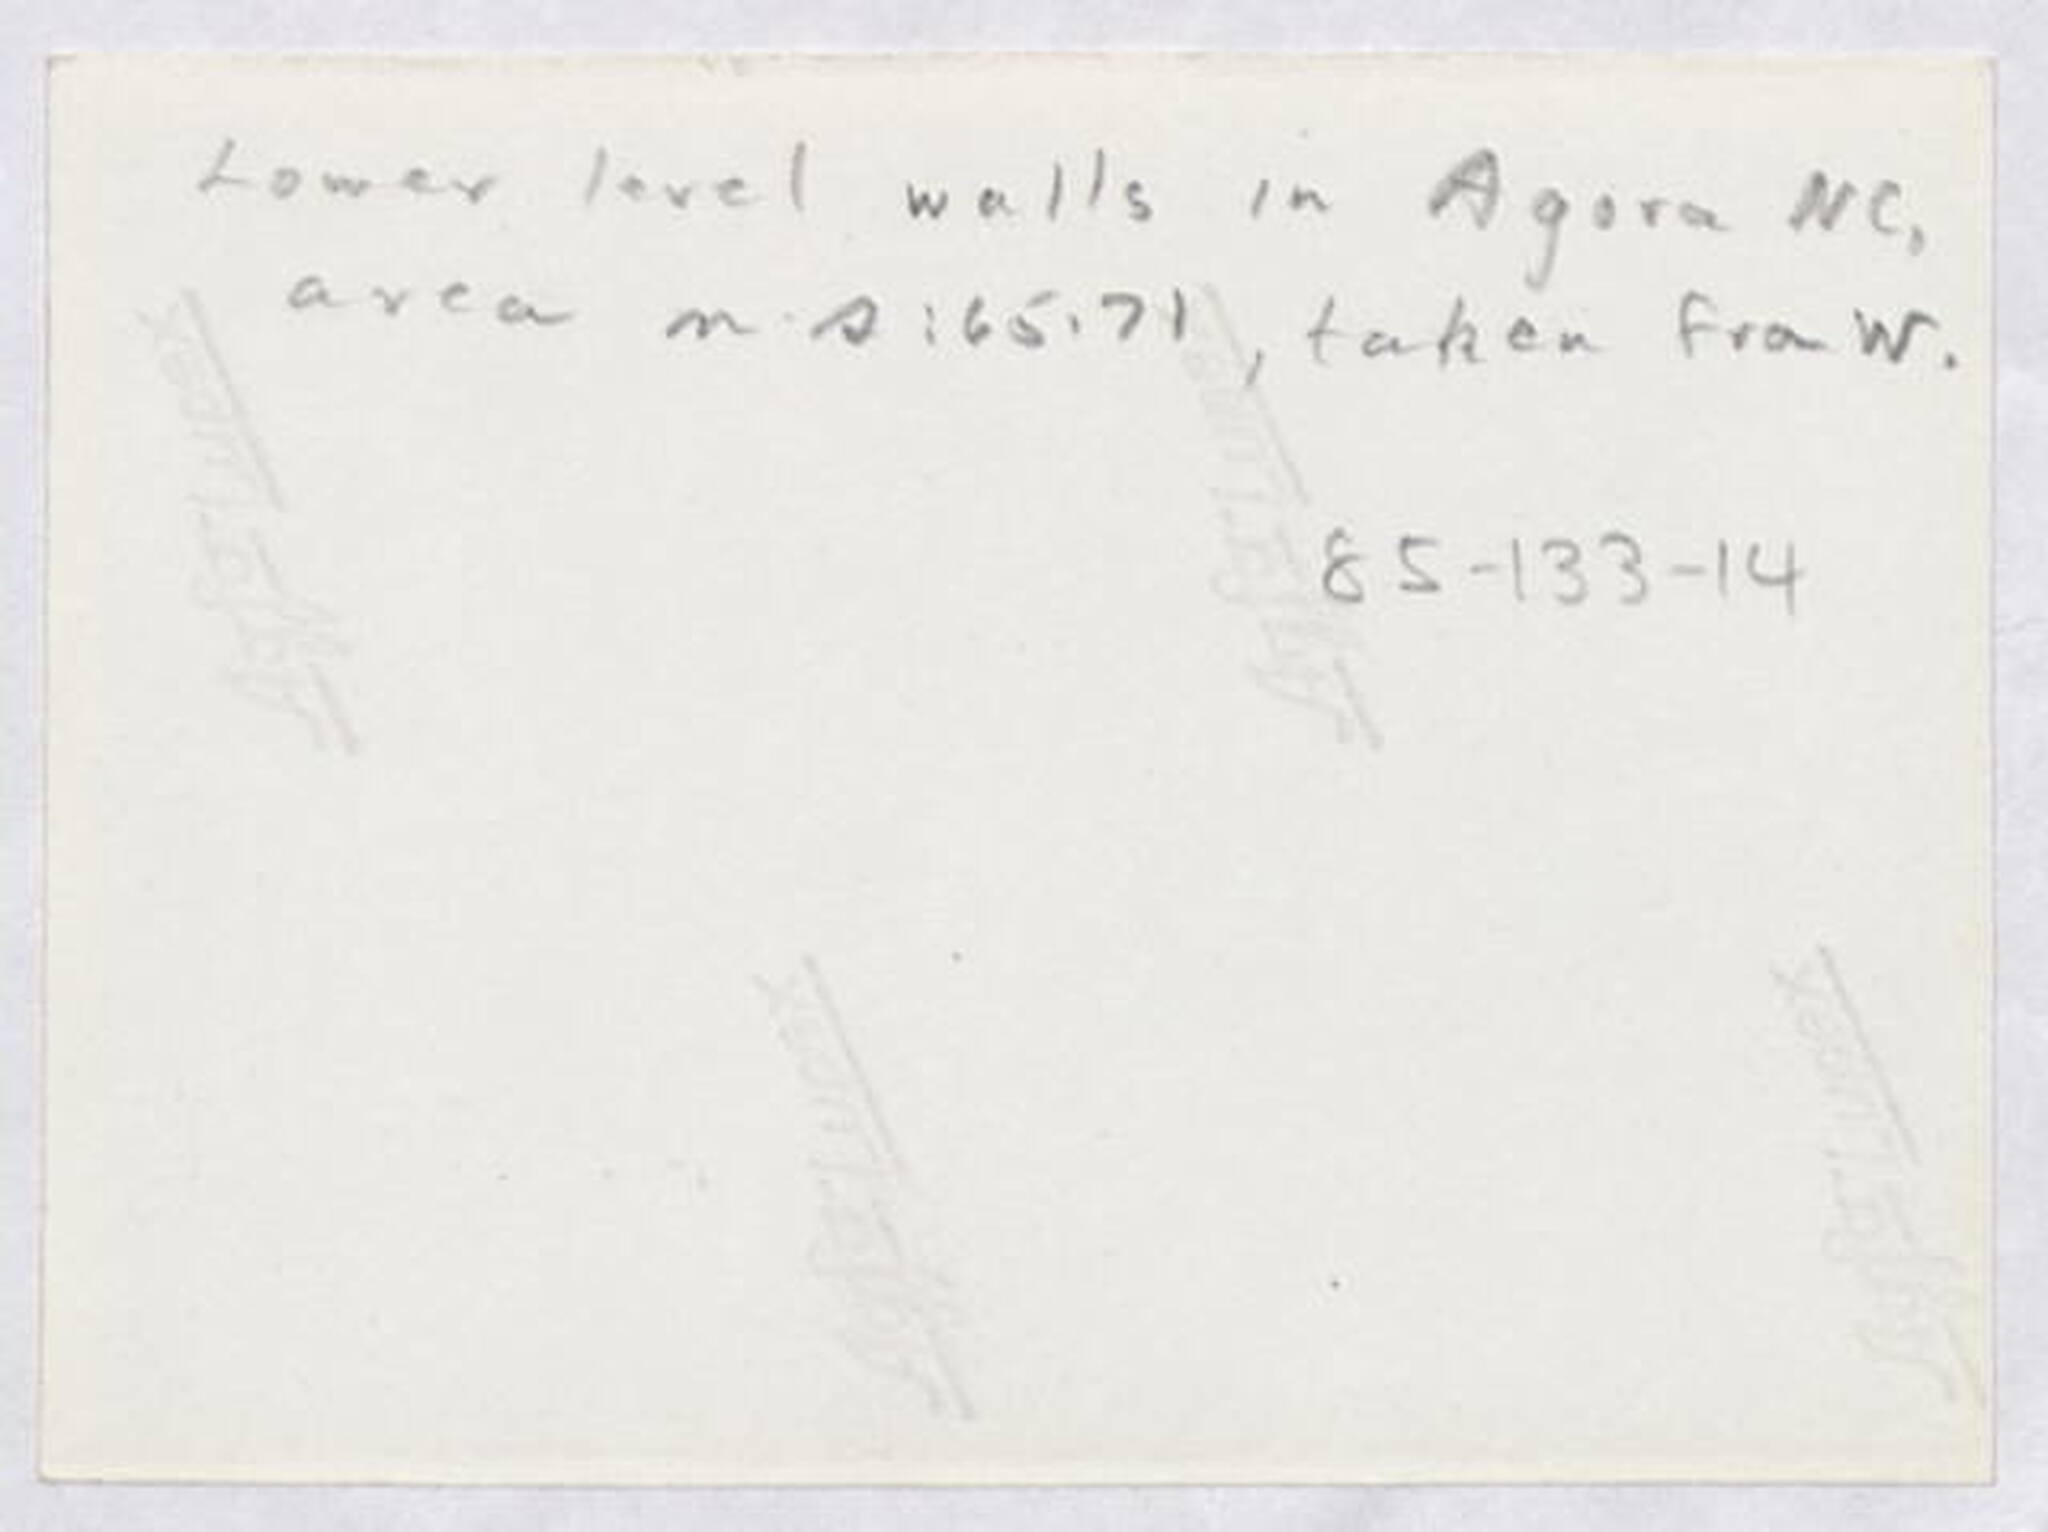 Lower level walls in Agora NC,
area m-s:65-71, taken from W.
85-133-14
Agfa Lupex
Agfa Lupex
Agfa Lupex
Agfa Lupex